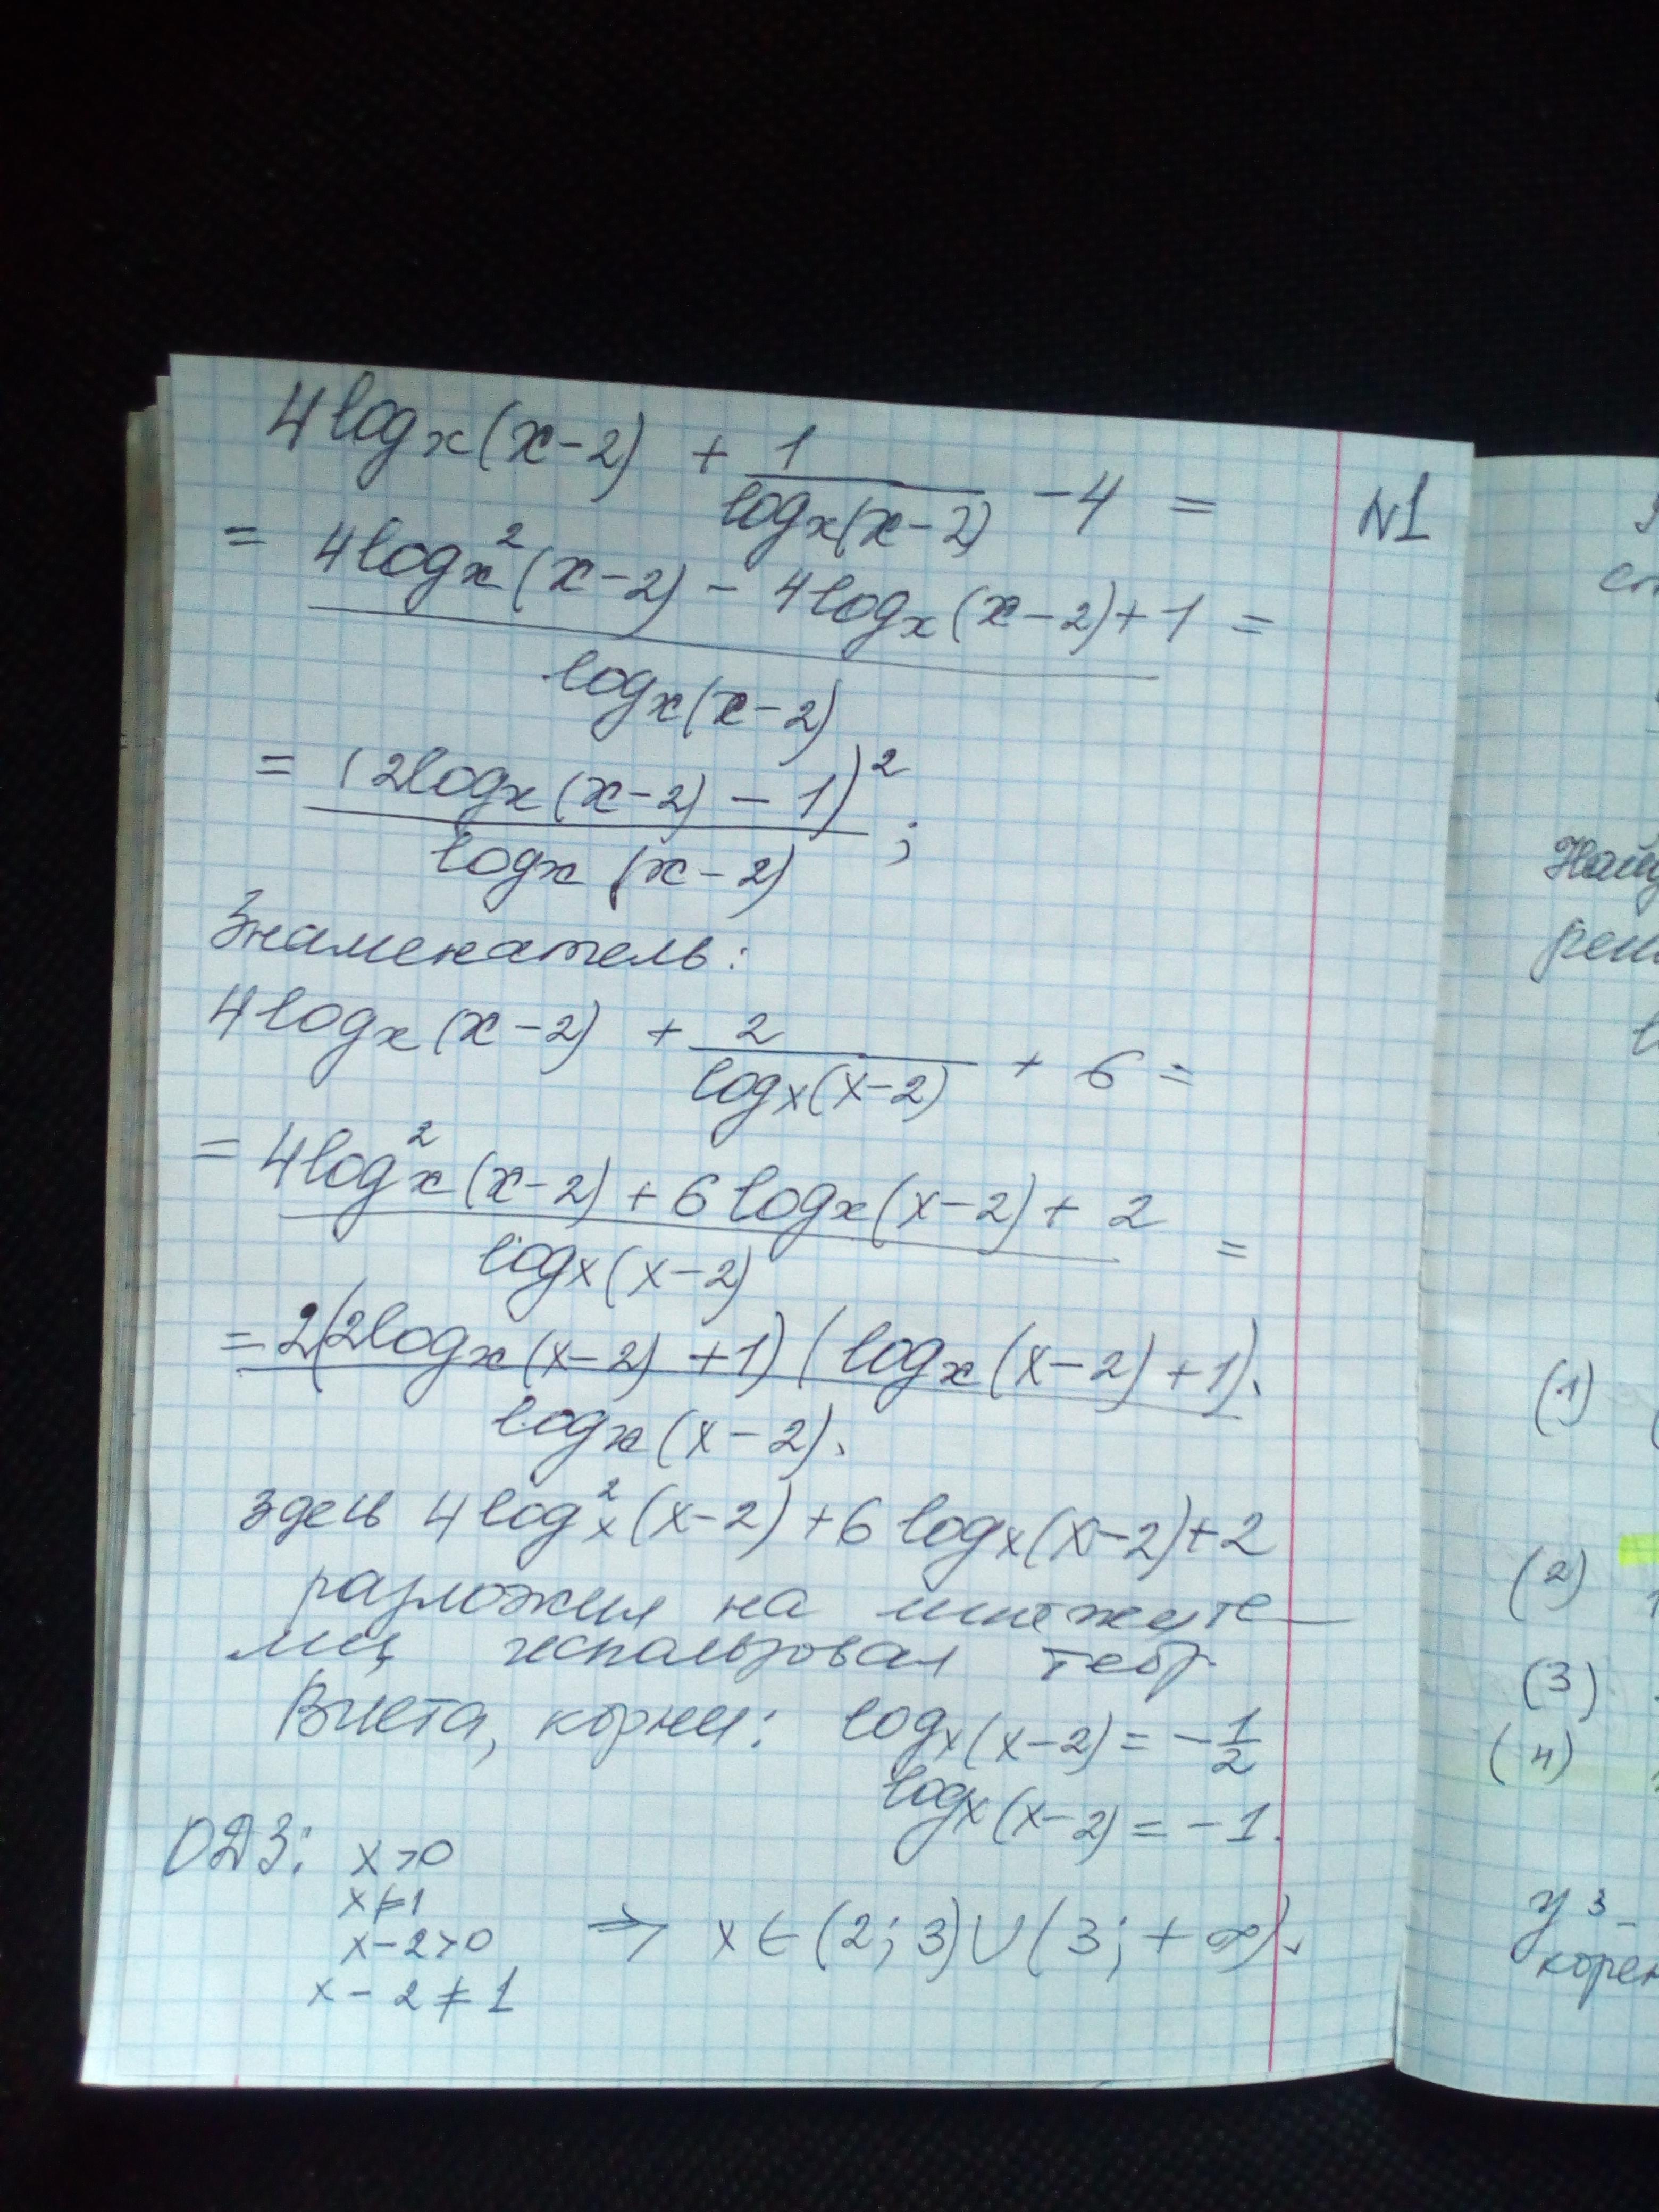 4log_x(x-2) + 1/log_x(x-2) - 4 =
N1
= (4log_x^2(x-2) - 4log_x(x-2) + 1)/log_x(x-2) =
= (2log_x(x-2) - 1)^2/log_x(x-2);
Знаменатель:
4log_x(x-2) + 2/log_x(x-2) + 6 =
= (4log_x^2(x-2) + 6log_x(x-2) + 2)/log_x(x-2) =
= 2(2log_x(x-2) + 1)(log_x(x-2) + 1)/log_x(x-2).
здесь 4log_x^2(x-2) + 6log_x(x-2) + 2
разложил на множите-
лиц использовал теор
Виета, корни: log_x(x-2) = -1/2
log_x(x-2) = -1.
ОДЗ: x>0
x≠1
x-2>0 ⇒ x∈(2;3)∪(3;+∞).
x-2≠1
(1)
(2)
(3)
(4)
y^3-